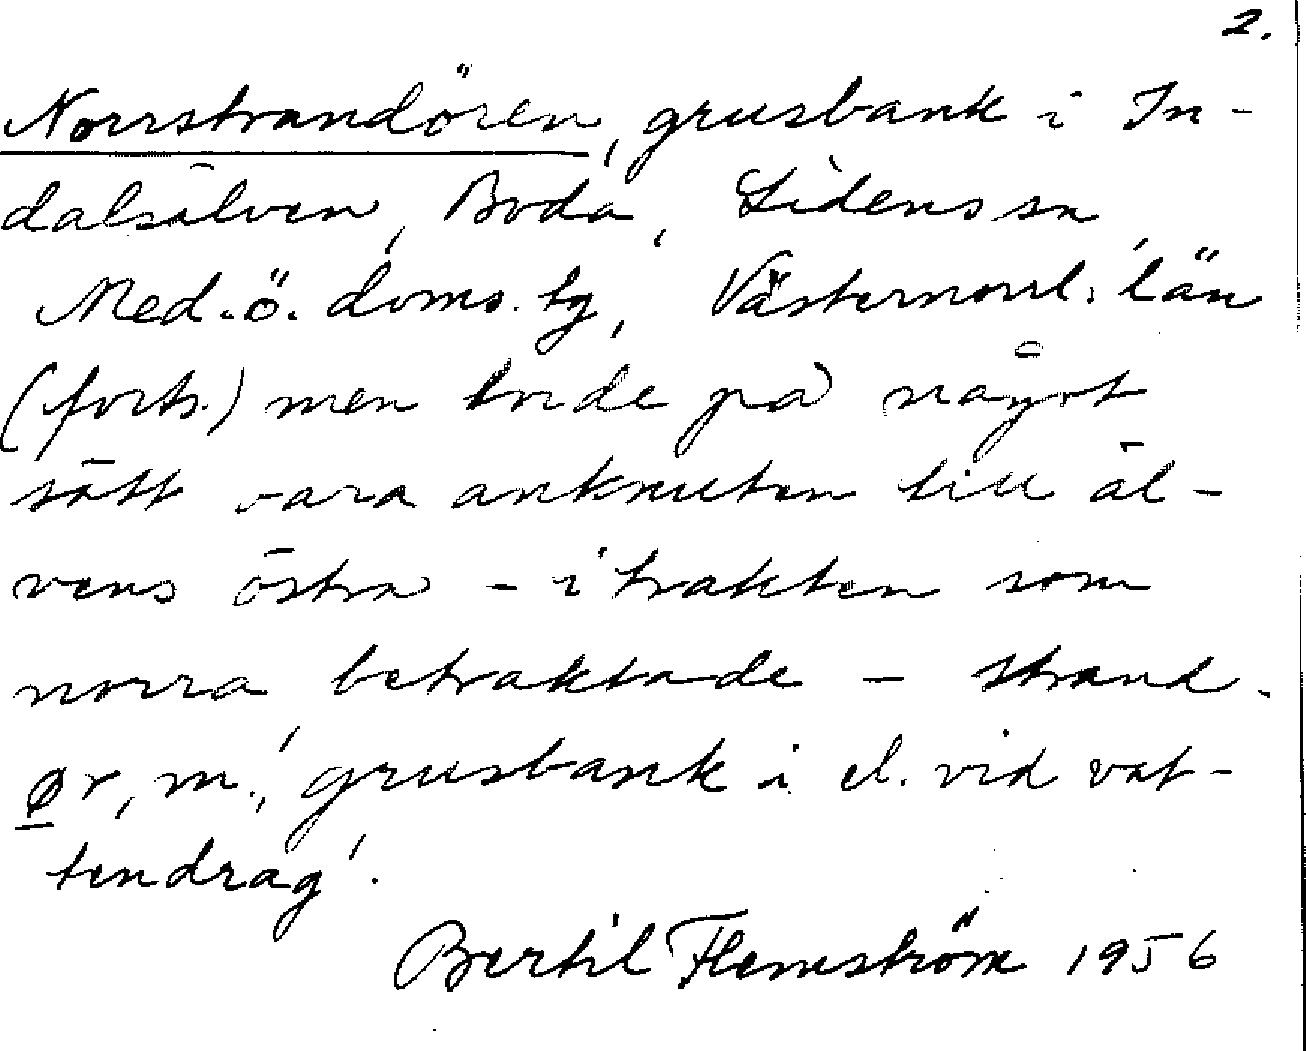 2.
Norrstrandören, grusbank i In-
dalsälven, Boda, Lidens sn,
Med.ö. doms. tg, Västernorrl. län
(forts.) men torde på något
sätt vara anknuten till äl-
vens östra - i trakten som
norra betraktade - strand.
ør, m., 'grusbank i el. vid vat-
tendrag'.
Bertil Flemström 1956